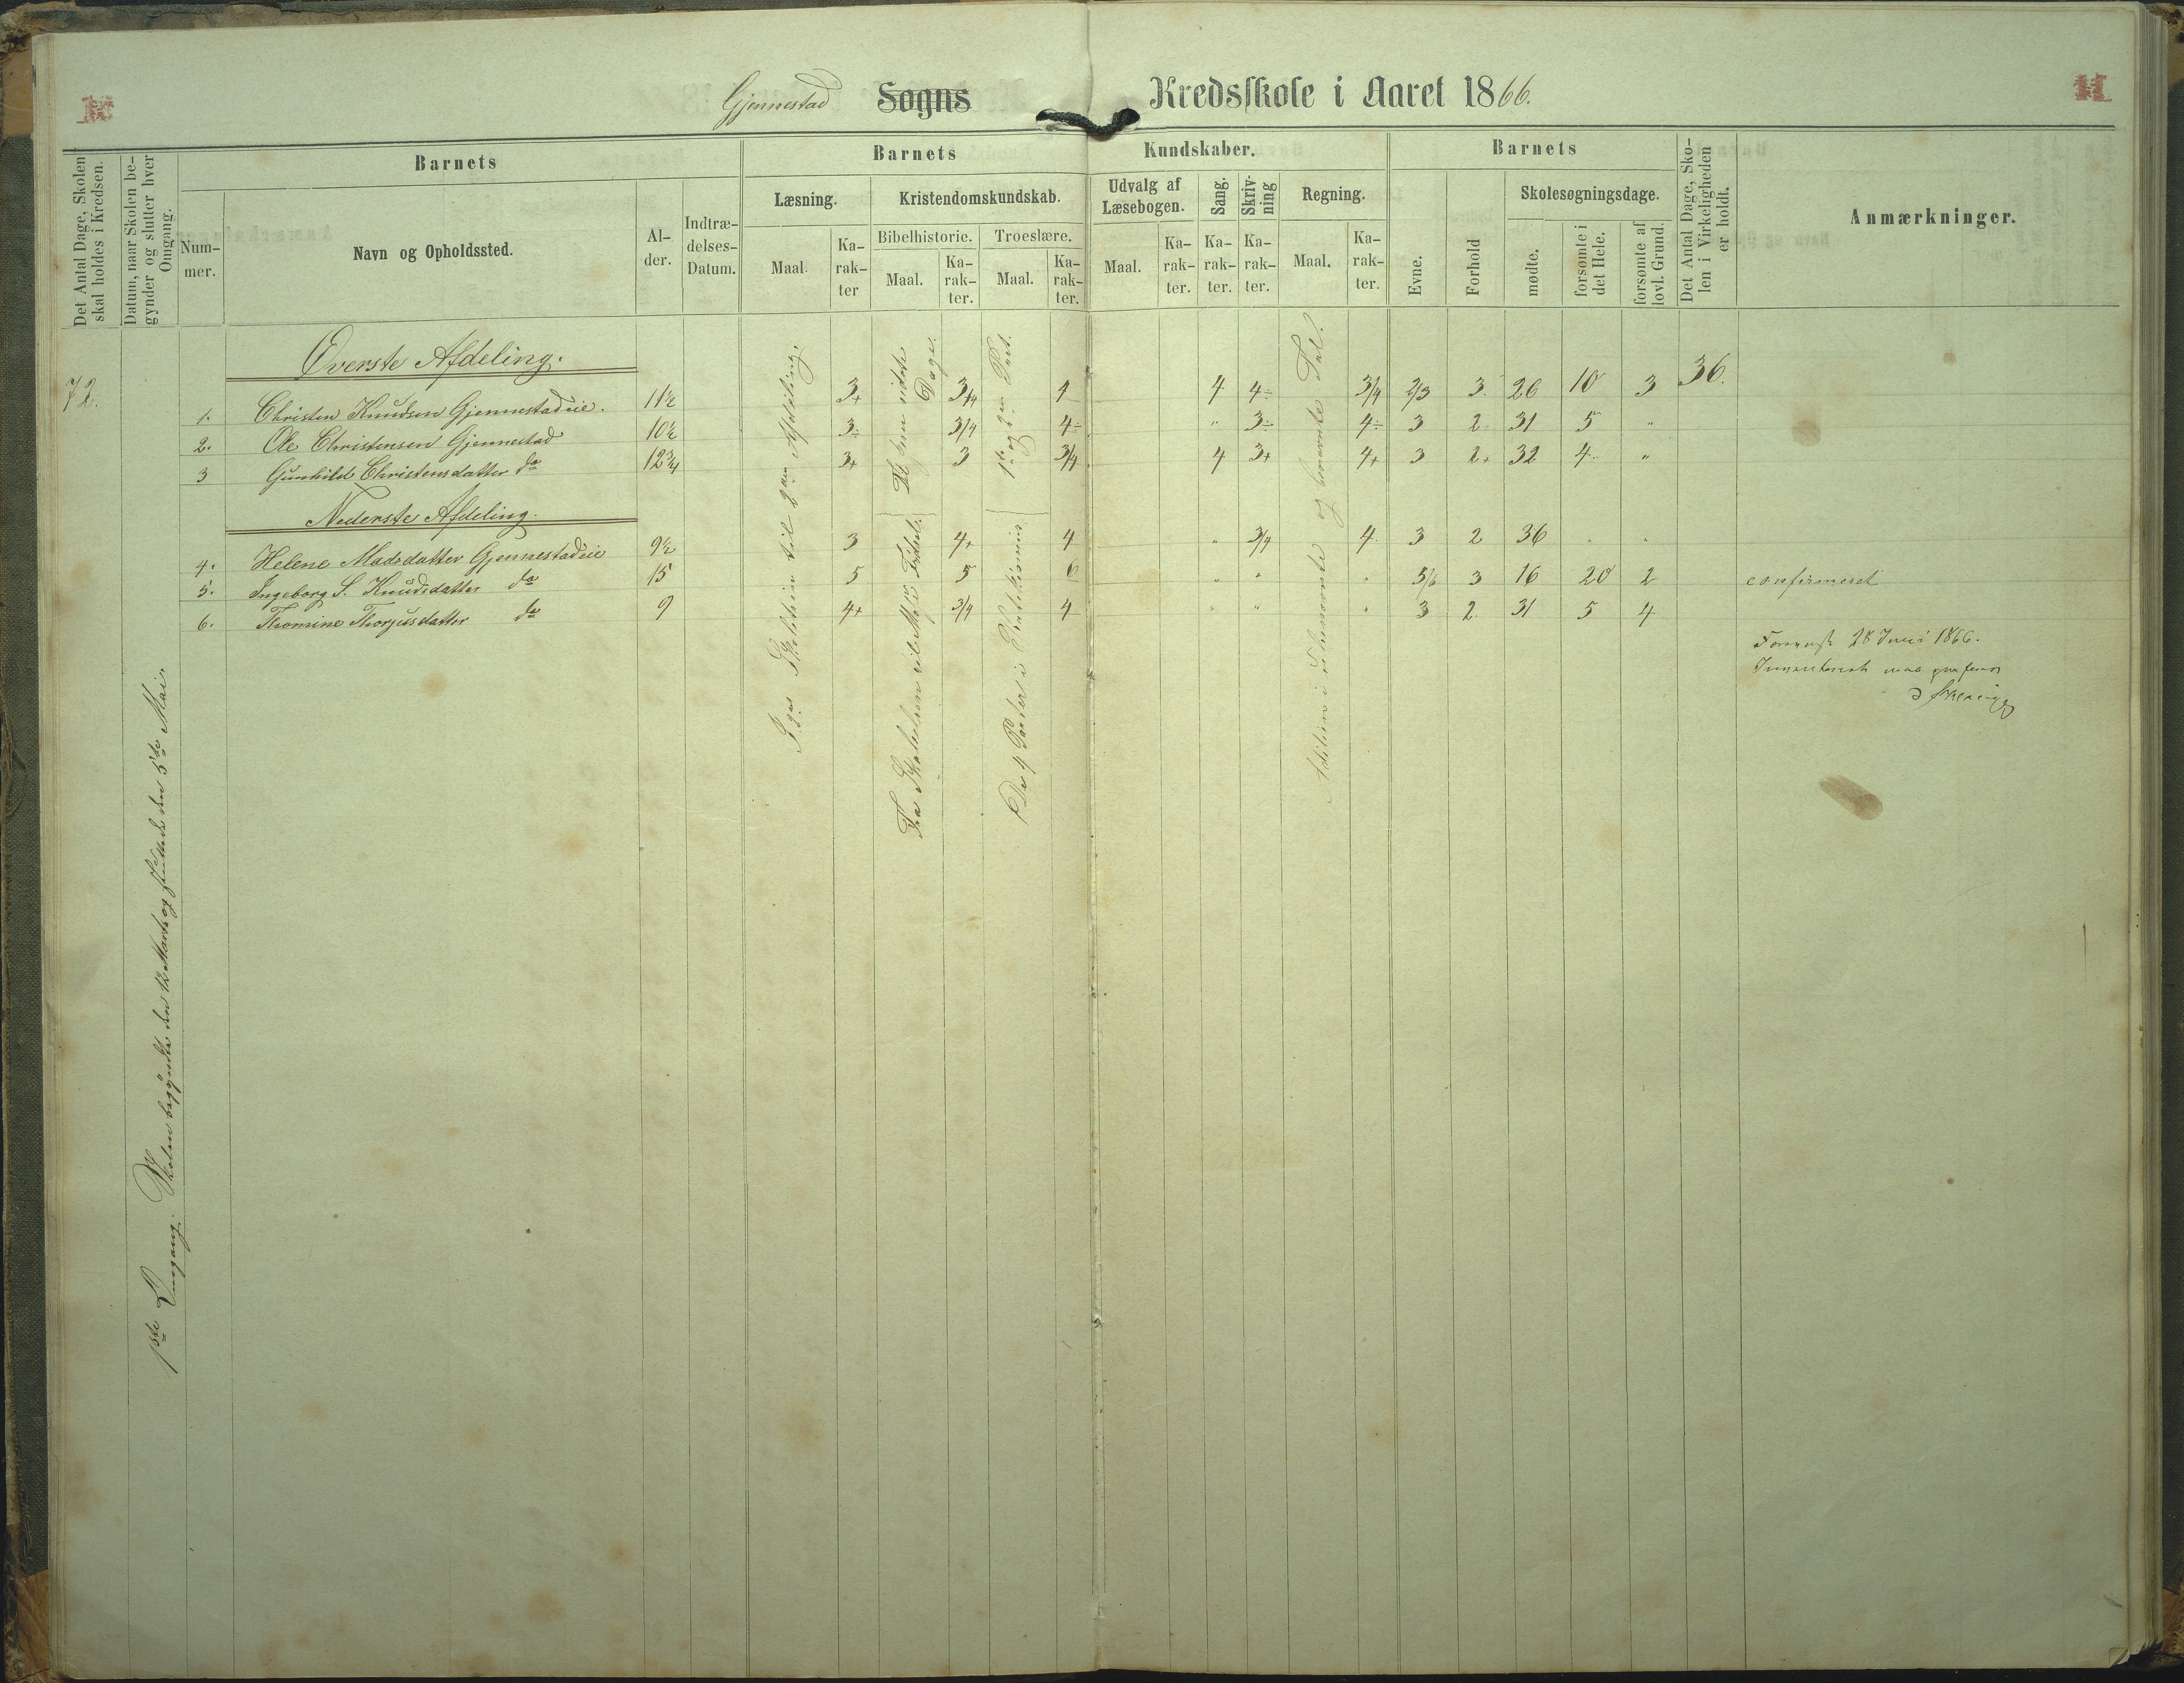 Gjennestad Sogns Kredsskole i Aaret 1866.
Det Antal Dage, Skolen skal holdes i Kredsen.
Datum, naar Skolen begynder og slutter hver Omgang.
Barnets
Nummer.
Navn og Opholdssted.
Alder.
Indtrædelses-Datum.
Barnets Kundskaber.
Læsning.
Maal.
Karakter
Kristendomskundskab.
Bibelhistorie.
Maal.
Karakter.
Troeslære.
Maal.
Karakter.
Udvalg af Læsebogen.
Maal.
Karakter.
Sang.
Karakter.
Skrivning
Karakter.
Regning.
Maal.
Karakter.
Barnets
Evne.
Forhold
Skolesøgningsdage.
mødte.
forsømte i det Hele.
forsømte af lovl. Grund.
Det Antal Dage, Skolen i Virkeligheden er holdt.
Anmærkninger.
Øverste Afdeling.
72. 36.
1. Christen Knudsen Gjennestadeie. 11½ 3+ 3+4 4 4 4÷ 3/4 2/3 3. 26 10 3
2. Ole Christensen Gjennestad 10½ 3÷ 3/4 4÷ " 3÷ 4÷ 3 2 31 5 "
3 Gunhild Christensdatter do 12¾ 3+ 3 3/4 4 3+ 4+ 3 2+ 32 4 "
Nederste Afdeling.
4. Helene Madsdatter Gjennestadeie 9½ 3 4+ 4 " 3/4 4 3 2 36 " "
5. Ingeborg S. Knudsdatter do 15 5 5 6 " " " 5/6 3 16 20 2 confirmeret
6. Thomine Thorjusdatter do 9 4+ 3/4 4 " " " 3 2 31 5 4
28 Juni 1866.
1ste Omgang. Skolen begyndte den 12 Marts og sluttede den 5te Mai.
til
Afdeling.
sidste Dage.
Fra
til
1ste og 2den Part.
De 4 Parter i
og benævnte Tal.